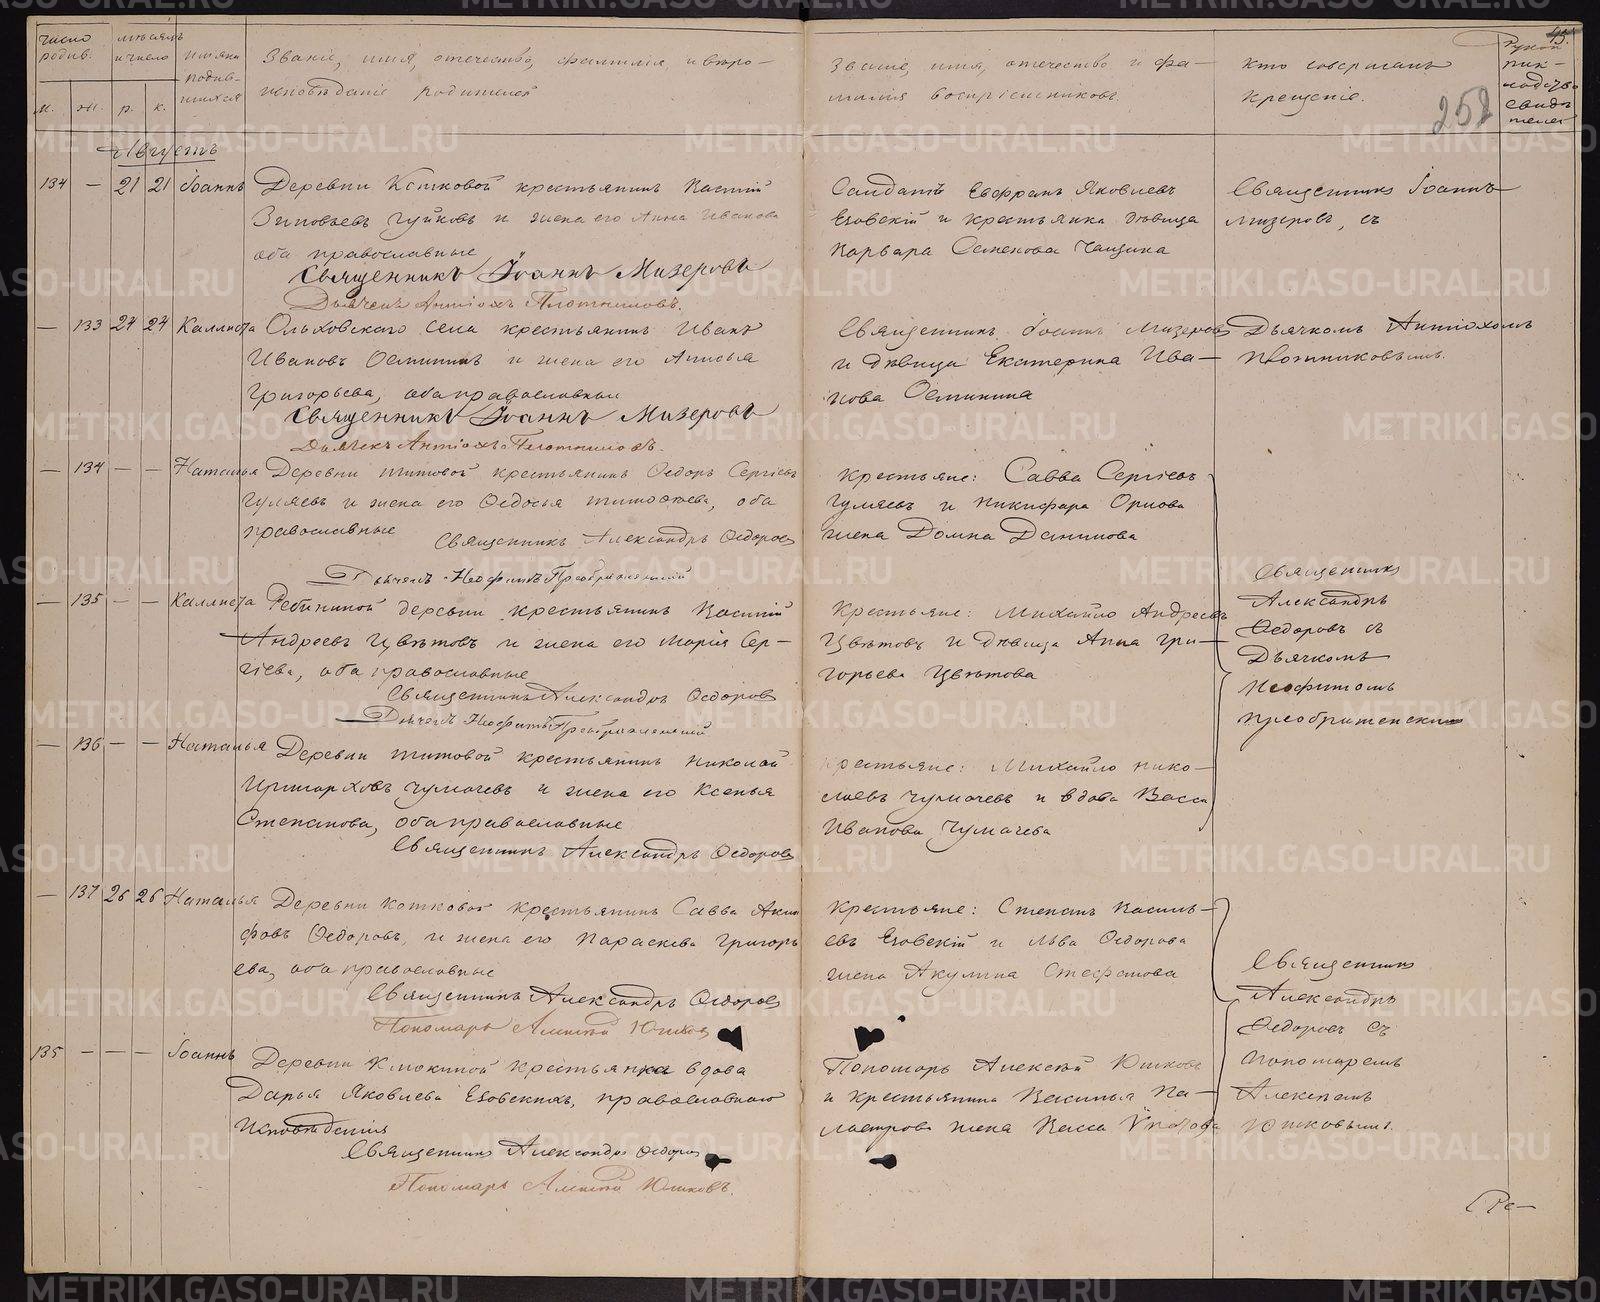 число родив.
м. ж.
мѣсяцъ и число
р. к.
имяна родив-
шихся
Званіе, имя, отечество, фамилія, и вѣро-
исповѣданіе родителей
Званіе, имя, отечество и фа-
милія воспріемниковъ.
Кто совершалъ
крещеніе.
Рукоприкладство свидѣтелей
45.
252
Августъ
134 — 21 21 Іоаннъ
Деревни Котковой крестьянинъ Василій
Зиновьевъ Чуйковъ и жена его Анна Иванова
оба православные
Священникъ Іоаннъ Мизеровъ
Дьячекъ Антіохъ Плотниковъ.
Солдатъ Евфранъ Яковлевъ
Езовскій и крестьянка дѣвица
Варвара Семенова Чащина
Священникъ Іоаннъ
Мизеровъ, съ
— 133 24 24 Каллиста
Ольховскаго села крестьянинъ Иванъ
Ивановъ Осминнъ и жена его Анисья
Григорьева, оба православные
Священникъ Іоаннъ Мизеровъ
Дьячекъ Антіохъ Плотниковъ.
Священникъ Іоаннъ Мизеровъ
и дѣвица Екатерина Ива-
нова Осминина
Дьячкомъ Антіохомъ
Плотниковымъ.
— 134 — — Наталья
Деревни Титовой крестьянинъ Ѳедоръ Сергіевъ
Гуляевъ и жена его Ѳедосья Тимоѳеева, оба
православные
Священникъ Александръ Ѳедоровъ
Дьячекъ Неофитъ Преображенскій
Крестьяне: Савва Сергіевъ
Гуляевъ и Никифора Орлова
жена Домна Данилова
— 135 — — Каллиста
Ребининой деревни крестьянинъ Василій
Андреевъ Цвѣтовъ и жена его Марія Сер-
гіева, оба православные
Священникъ Александръ Ѳедоровъ
Дьячекъ Неофитъ Преображенскій
Крестьяне: Михайло Андреевъ
Цвѣтовъ и дѣвица Анна Гри-
горьева Цвѣтова
Священникъ
Александръ
Ѳедоровъ съ
Дьячкомъ
Неофитомъ
Преображенским
— 136 — — Наталья
Деревни Титовой крестьянинъ Николай
Чумачевъ и жена его Ксенья
Степанова, оба православные
Священникъ Александръ Ѳедоровъ
Крестьяне: Михайло Нико-
лаевъ Чумачевъ и вдова Васса
Иванова Чумачева
— 137 26 26 Наталья
Деревни Котковой крестьянинъ Савва Акин
фовъ Ѳедоровъ, и жена его Параскева Григорь
ева, оба православные
Священникъ Александръ Ѳедоровъ
Пономарь Алексѣй Юшковъ
Крестьяне: Степанъ Василь-
евъ Езовскій и Льва Ѳедорова
жена Акулина Стефанова
Священникъ
Александръ
Ѳедоровъ съ
Пономаремъ
Алексѣемъ
Юшковымъ.
135 — — — Іоаннъ
Деревни Клюкиной крестьянка вдова
Дарья Яковлева Езовскихъ, православного
исповѣданія
Священникъ Александръ Ѳедоровъ
Пономарь Алексѣй Юшковъ.
Пономарь Алексѣй Юшковъ
и крестьянина Василья Ка-
жена Васса
Ре-
METRIKI.GASO-URAL.RU